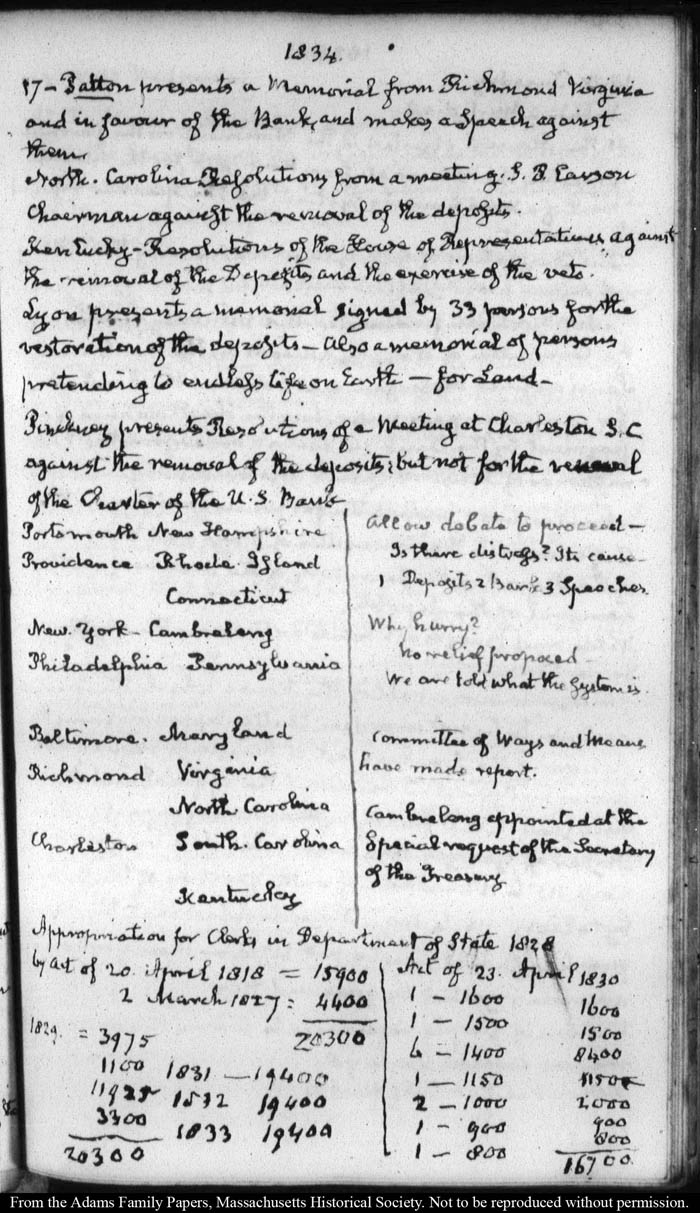 1834.
17 – Patton presents a Memorial from Richmond Virginia
and in favour of the Bank, and makes a Speech against
them.
North. Carolina Resolutions from a meeting. S. P. Carson
Chairman against the removal of the deposits.
Kentucky – Resolutions of the House of Representatives against
the removal of the Deposits and the exercise of the veto.
Lyon presents a memorial signed by 33 persons for the
restoration of the deposits – Also a memorial of persons
pretending to endless life on Earth – for Land –
Pinckney presents Resolutions of a Meeting at Charleston S. C
against the removal of the deposits; but not for the renewal
of the Charter of the U. S. Bank
Portsmouth New Hampshire
Providence Rhode. Island
Connecticut
New. York – Cambreleng
Philadelphia Pennsylvania
Baltimore. Maryland
Richmond Virginia
North Carolina
Charleston South. Carolina
Kentucky
Allow debate to proceed –
Is there distress? Its cause –
1 Deposits 2 Bank 3 Speeches.
Why hurry?
No relief proposed –
We are told what the System is.
Committee of Ways and Means
have made report.
Cambreleng appointed at the
Special request of the Secretary
of the Treasury
Appropriation for Clerks in Department of State 1828
by Act of 20. April 1818 = 15900
2 March 1827 = 4400
20300
1829. = 3975
1100 1831 – 19400
11925 1832 19400
3300 1833 19400
20300
Act of 23. April 1830
1 – 1600 1600
1 – 1500 1500
6 – 1400 8400
1 – 1150 1150
2 – 1000 2000
1 – 900 900
1 – 800 800
16700
From the Adams Family Papers, Massachusetts Historical Society. Not to be reproduced without permission.